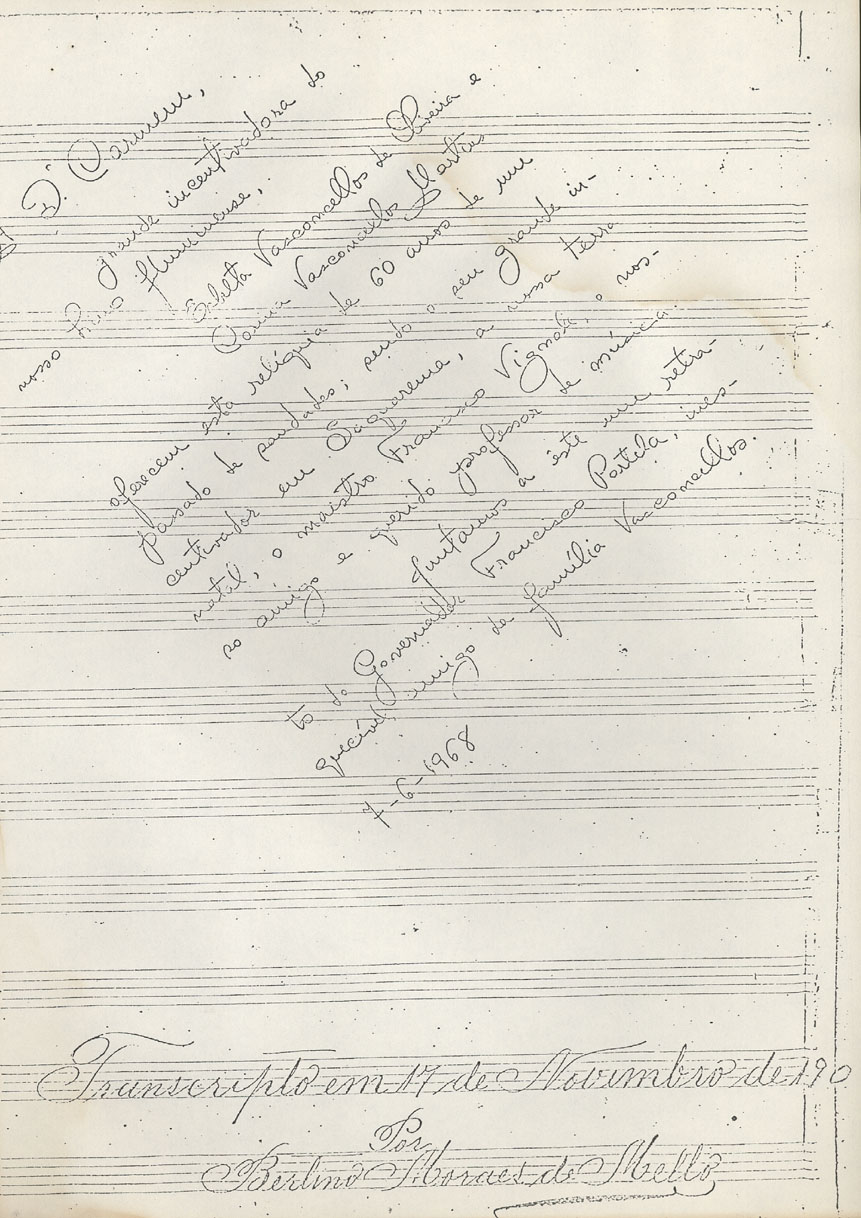 D. Carmem,
grande incentivadora do
nosso hino fluminense,
Vasconcellos de Oliveira e
Corina Vasconcellos Martins
oferecem esta relíquia de 60 anos de um
passado de saudades; sendo o seu grande in-
centivador em Saquarema, a nossa terra
natal, o maestro Francisco Vignoli, o nos-
so amigo e querido professor de música.
Juntamos a êste um retra-
to do Governador Francisco Portela, ines-
quecível amigo da família Vasconcellos.
7-6-1968
Transcripto em 17 de Novembro de 190
Por
Berlino Moraes de Mello